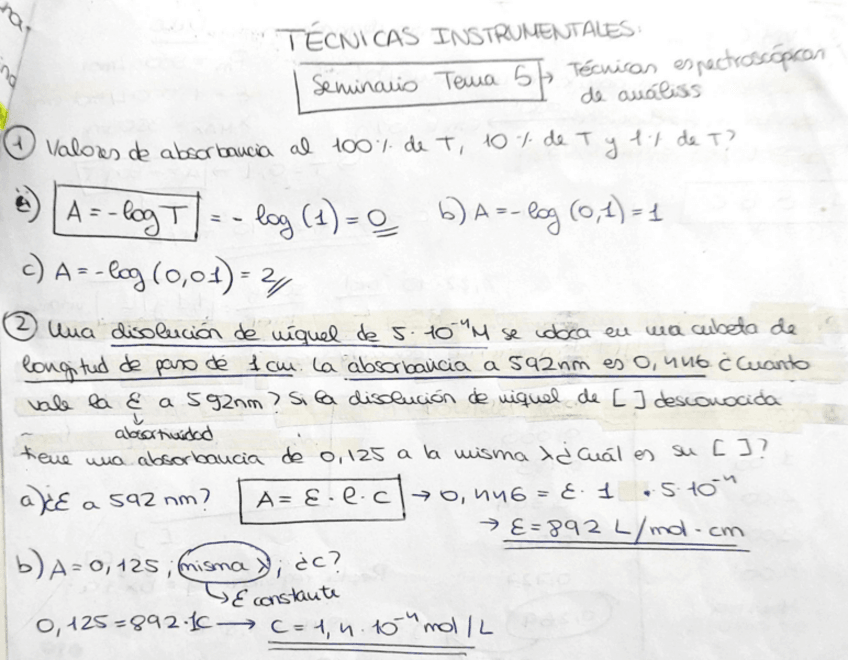 TÉCNICAS INSTRUMENTALES.
Seminario Tema 5 → Técnicas espectroscópicas
de análisis
① Valores de absorbancia al 100% de T, 10% de T y 1% de T?
a) A = -log T = - log (1) = 0 b) A = -log (0,1) = 1
c) A = -log (0,01) = 2//
② Una disolución de níquel de 5·10⁻⁴M se coloca en una cubeta de
longitud de paso de 1 cm. La absorbancia a 592nm es 0,446 ¿Cuanto
vale la ε a 592nm? Si la disolución de níquel de [ ] desconocida
↓
absortividad
tiene una absorbancia de 0,125 a la misma λ ¿Cuál es su [ ]?
a) ¿ε a 592 nm? A = ε · l · c → 0,446 = ε · 1 · 5·10⁻⁴
→ ε = 892 L/mol·cm
b) A = 0,125 ; misma λ ; ¿C?
↳ ε constante
0,125 = 892·1C → C = 1,4·10⁻⁴ mol/L